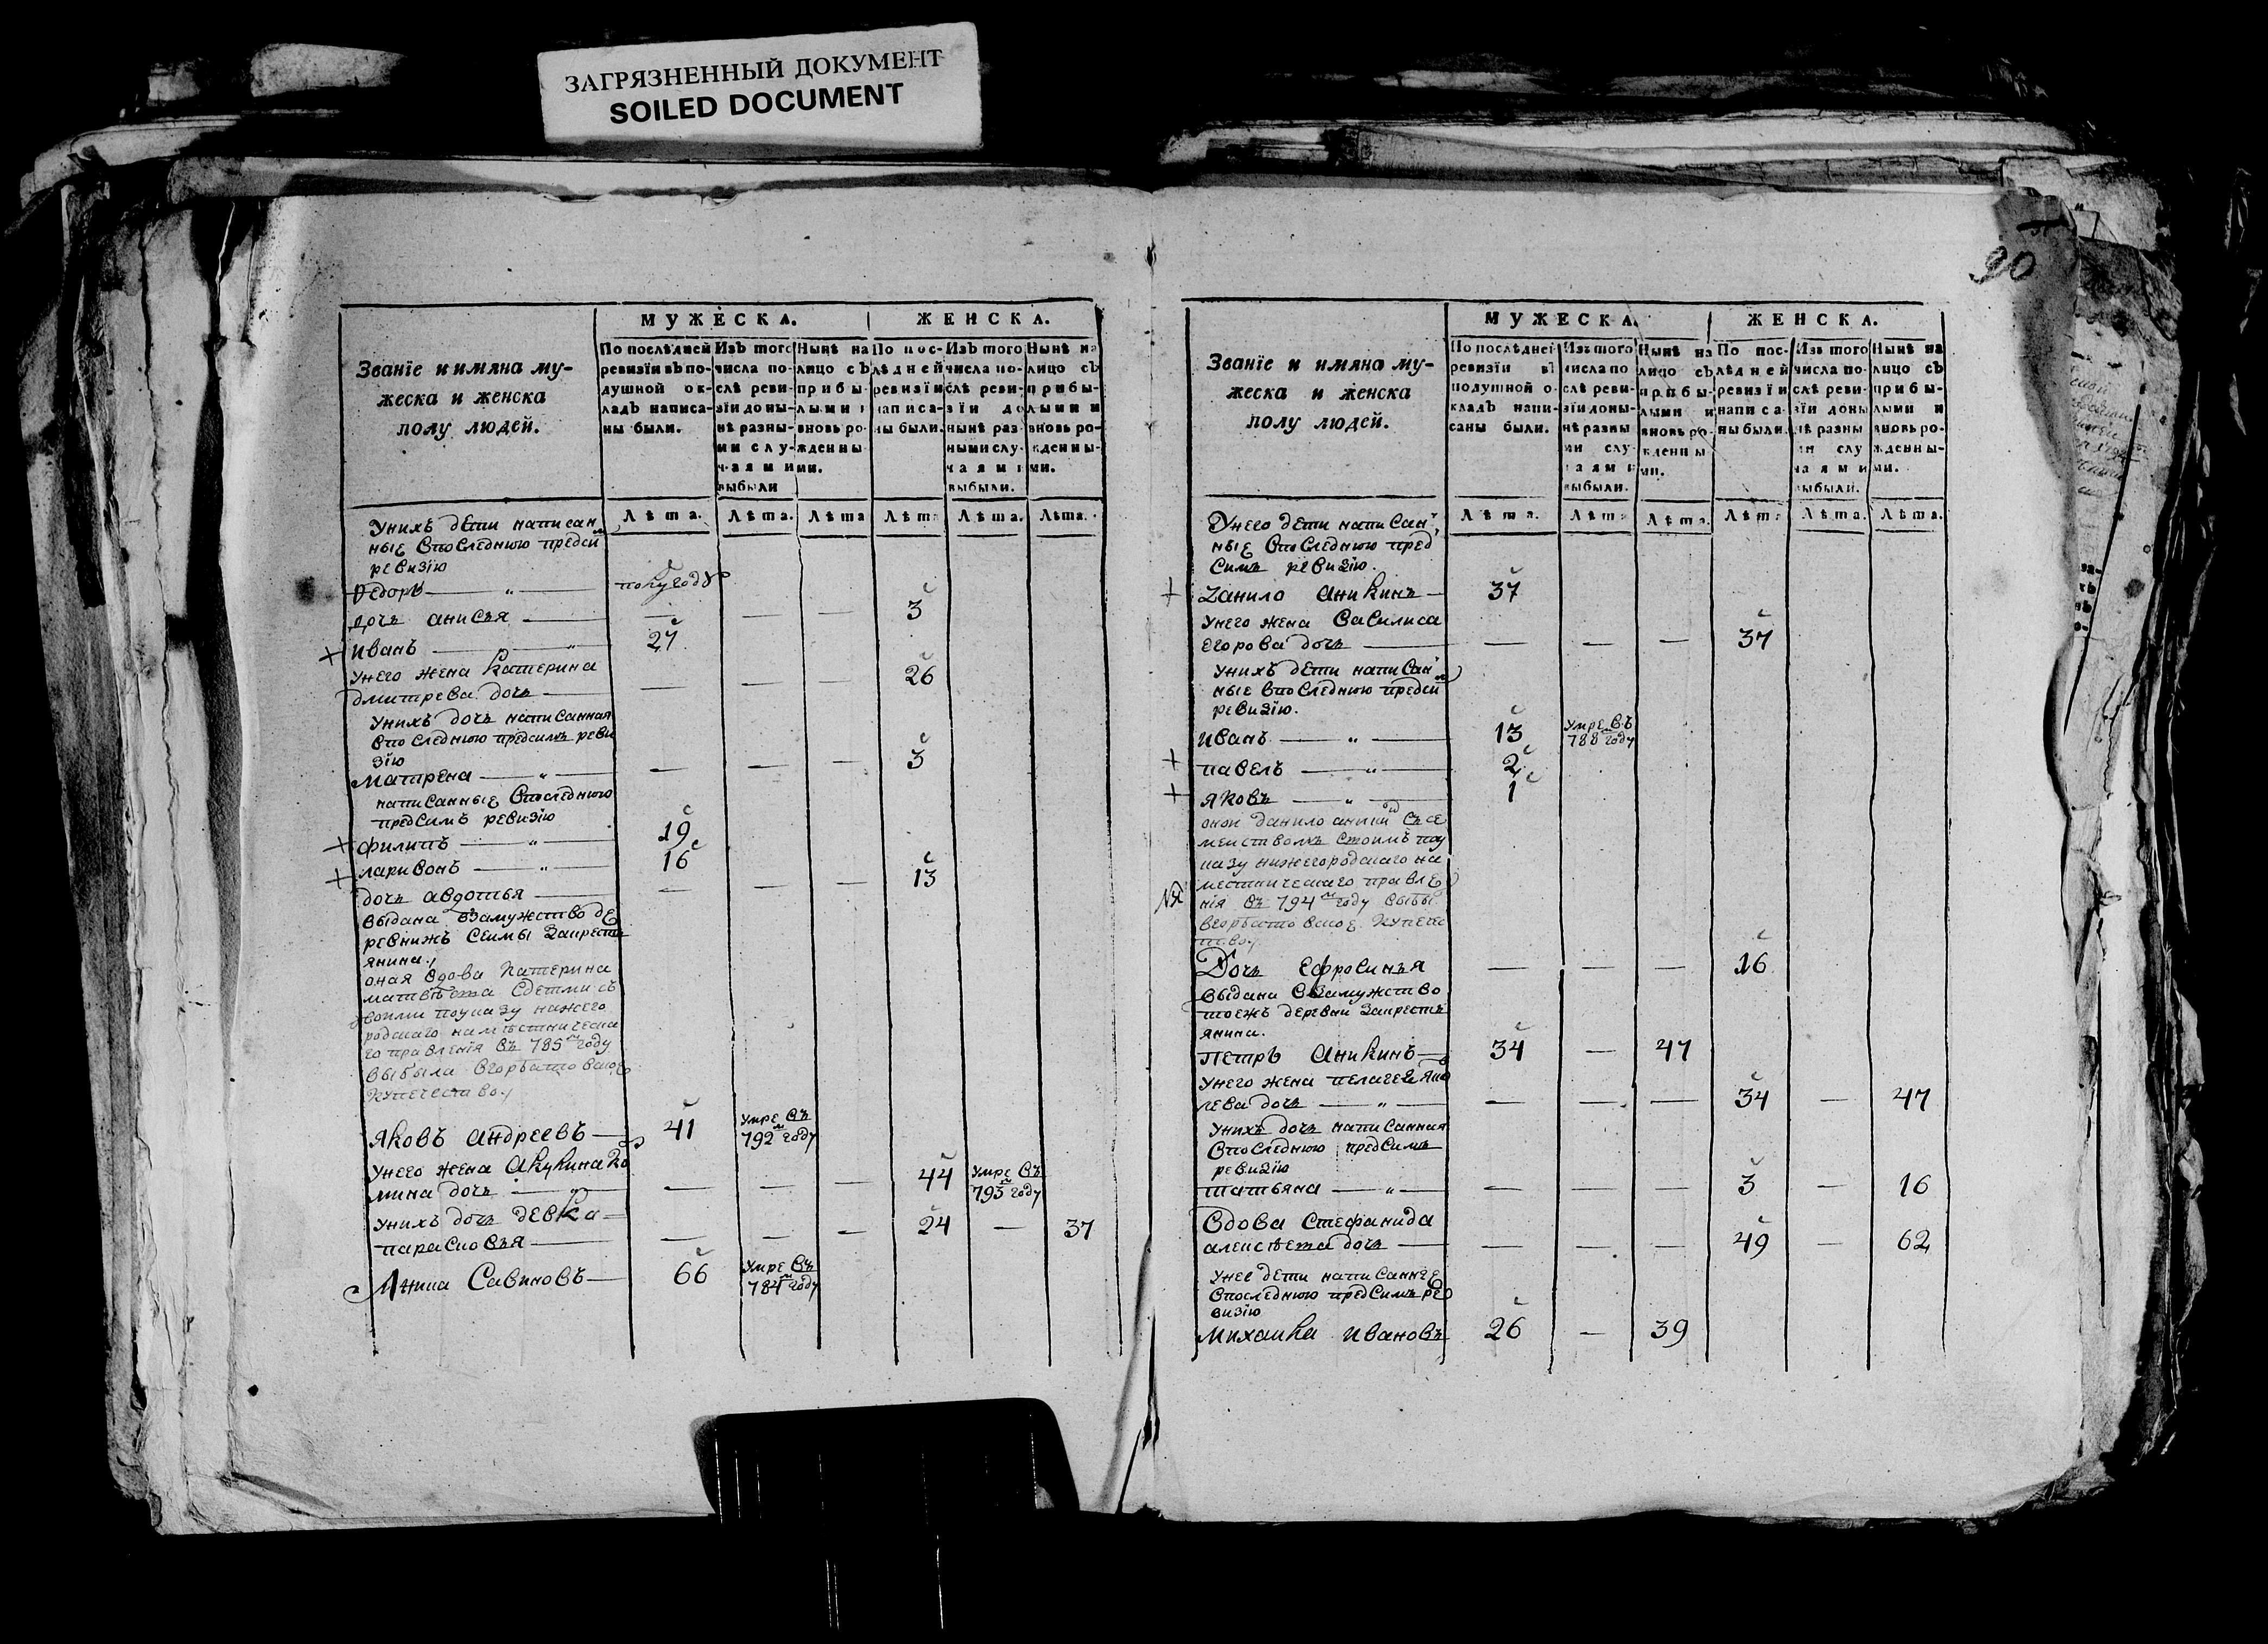 ЗАГРЯЗНЕННЫЙ ДОКУМЕНТ
SOILED DOCUMENT
90
Званіе и имяна му-
жеска и женска
полу людей.
МУЖЕСКА.
ЖЕНСКА.
По послѣдней
ревизіи въ по-
душной ок-
ладъ написа-
ны были.
Изъ того
числа по-
слѣ реви-
зіи до ны-
нѣ разны-
ми слу-
чаями
выбыли
Нынѣ на
лицо съ
прибы-
лыми и
вновь ро-
жденны
ми.
По пос-
лѣдней
ревизіи
написа-
ны были.
Изъ того
числа по-
слѣ реви-
зіи до
нынѣ раз
ными слу-
чаями
выбыли.
Нынѣ на
лицо съ
прибы-
лыми и
вновь ро-
жденны-
ми.
Лѣта. Лѣта. Лѣта Лѣта Лѣта. Лѣта.
Унихъ дети написан
ные впоследнюю предси
ревизію
Федоръ — „ — полугоду
дочь анисья — — — — 3
+ иванъ — „ — 27
унего жена катерина
дмитрева дочь — — — — 26
Унихъ дочь написанная
впоследнюю предсимъ реви
зію
матрена — „ — — — — 3
написанные впоследнюю
предсимъ ревизію
+ филипъ — „ — 19
+ ларивонъ — „ — 16
дочь авдотья — — — — 13
выдана взамужство де
ревнижъ Сеимы закрестья
янина.
оная вдова катерина
матвѣева сдетми съ
воими поуказу нижего
родскаго намѣстническа
го правленія въ 785м году
выбыла вгорбатовское
купечество
яковъ андреевъ — 41 умре въ
792м году
унего жена акулина ко
мина дочь — „ — — — — 44 умре въ
793м году
унихъ дочь девка —
парасковья — — — — 24 — 37
Аника Савиновъ — 66 умре въ
784м году
Званіе и имяна му-
жеска и женска
полу людей.
МУЖЕСКА.
ЖЕНСКА.
По послѣдней
ревизіи въ
подушной о-
кладъ напи-
саны были.
Изъ того
числа по
слѣ реви-
зіи до ны-
нѣ разны
ми слу-
чаями
выбыли.
Нынѣ на
лицо съ
прибы-
лыми и
вновь ро-
жденны
ми.
По пос-
лѣдней
ревизіи
написа-
ны были.
Изъ того
числа по-
слѣ реви-
зіи до ны
нѣ разны
ми слу
чаями
выбыли.
Нынѣ на
лицо съ
прибы-
лыми и
вновь ро-
жденны-
ми.
Лѣта. Лѣта Лѣта. Лѣта Лѣта. Лѣта.
Унего дети написан
ные впоследнюю пред
симъ ревизію.
+ Данило аникинъ — 37
унего жена василиса
егорова дочь — — — — 37
унихъ дети написан
ные впоследнюю предси
ревизію.
иванъ — „ — 13 умре въ
788м году
+ павелъ — „ — 2
+ яковъ — „ — 1
оной данило аникин съ се
меиствомъ своимъ поу
казу нижегородскаго на
местническаго правле
нія въ 794м году выбы
вгорбатовское купече
ство
Дочь ефросинья — — — 16
выдана взамужство
тоежъ деревни закрестья
янина.
петръ аникинъ — 34 — 47
унего жена пелагея яко
лева дочь — „ — — — — 34 — 47
унихъ дочь написанная
впоследнюю предсимъ
ревизію
татьяна — „ — — — — 3 — 16
вдова стефанида
алексѣева дочь — — — — 49 — 62
унее дети написанные
впоследнюю предсимъ ре
визію
михаила ивановъ 26 — 39